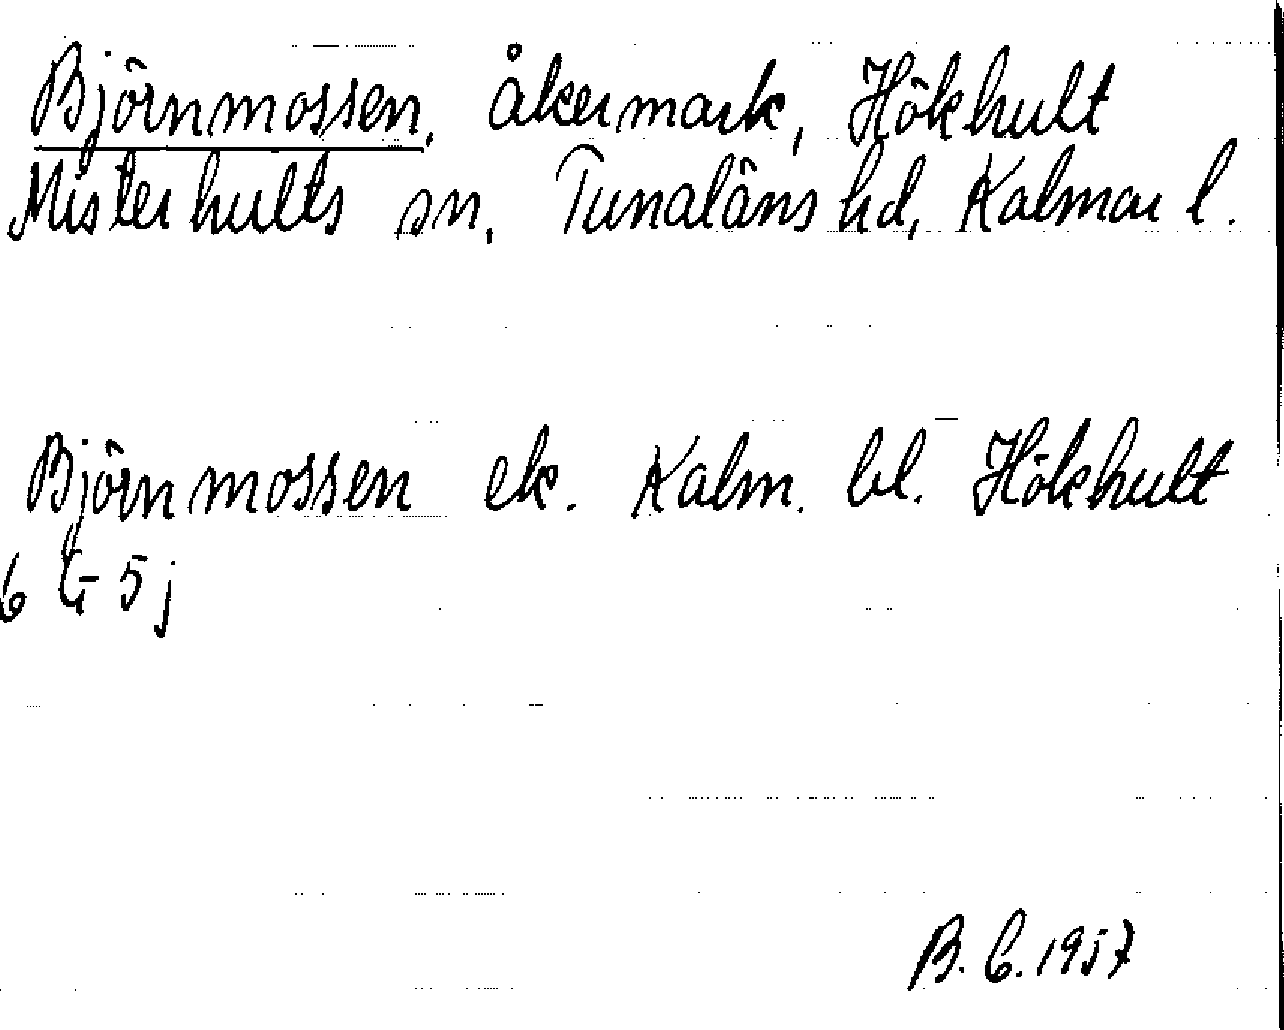 Björnmossen, åkermark, Hökhult
Misterhults sn, Tunaläns hd, Kalmar l.
Björnmossen ek. Kalm. bl. Hökhult
6 G 5 j
B. C. 1957